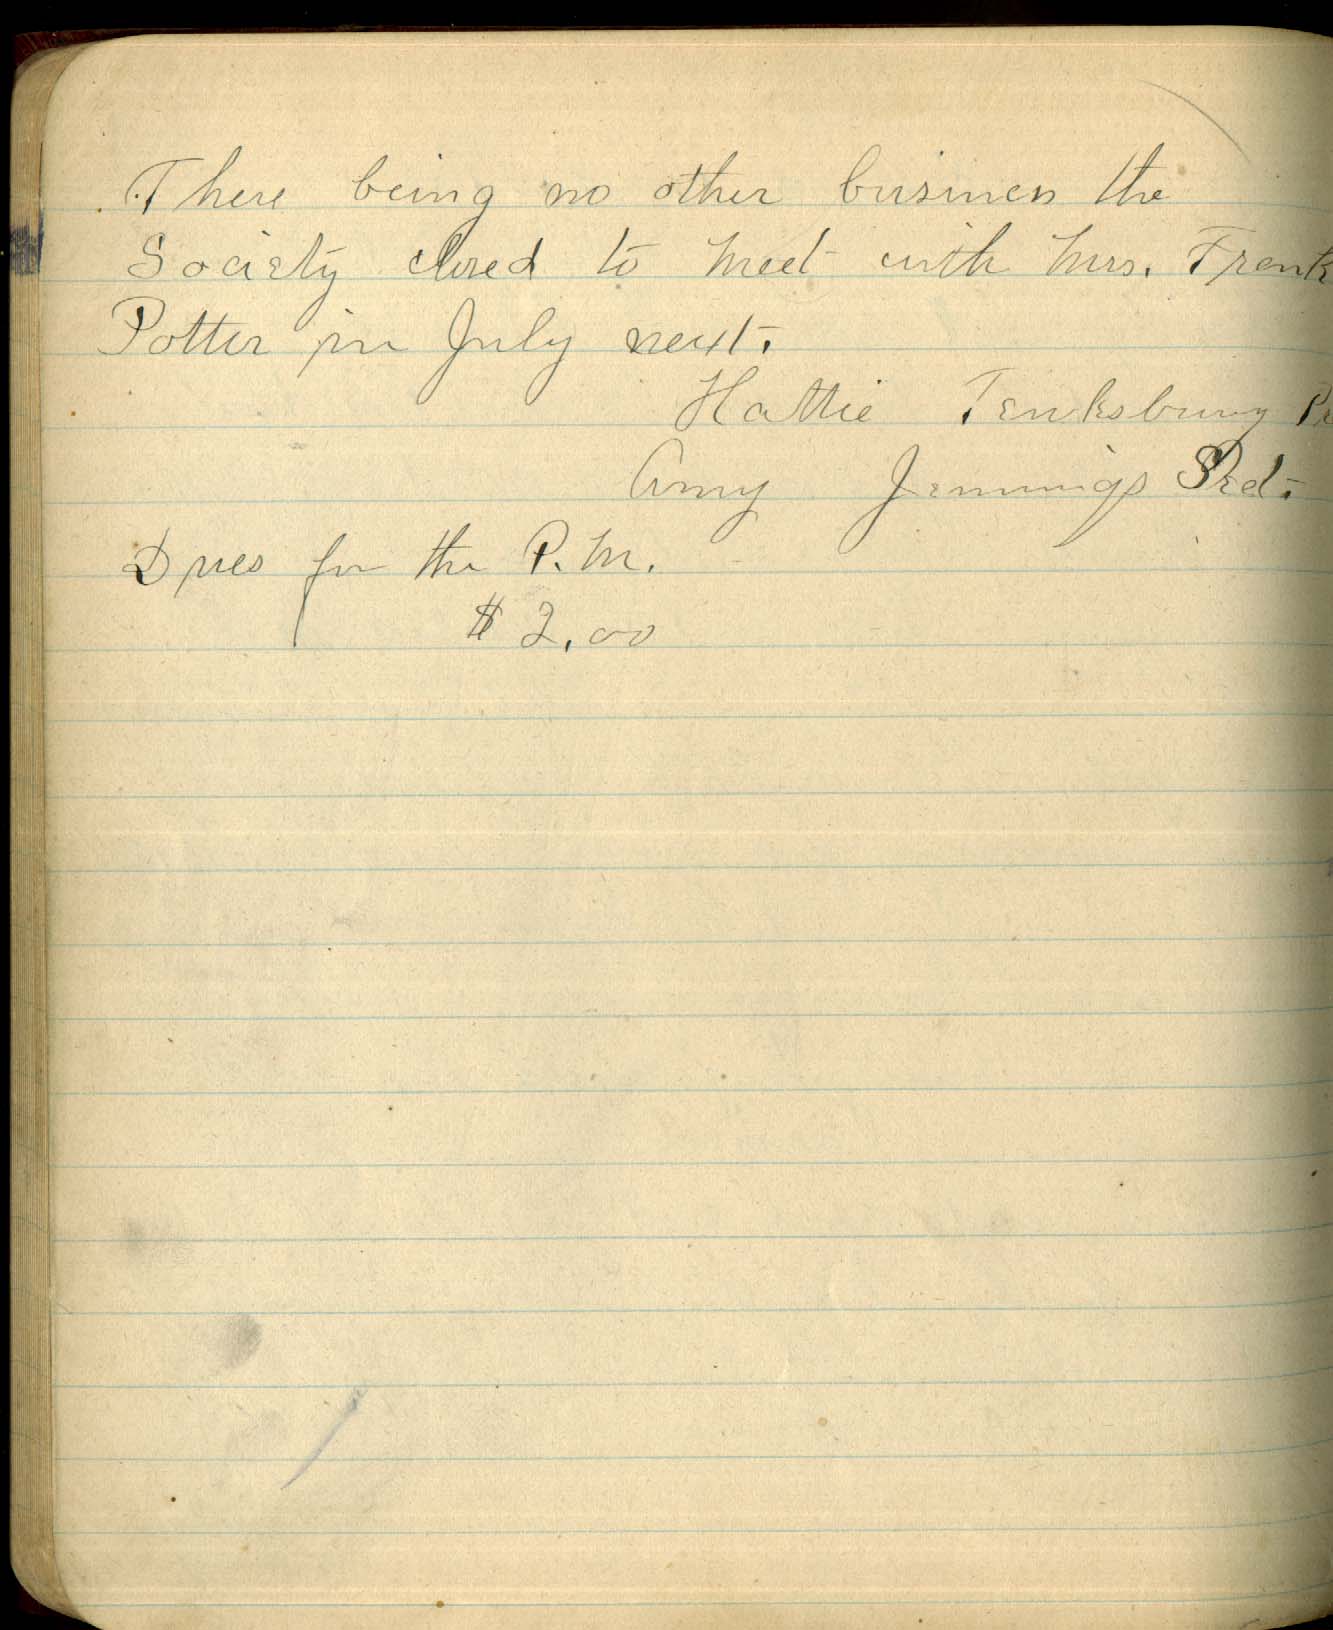 There being no other business the
Society closed to meet with Mrs. Frank
Potter in July next.
Hattie Tewksbury
Amy Jennings Sect.
Dues for the P.M.
$2.00